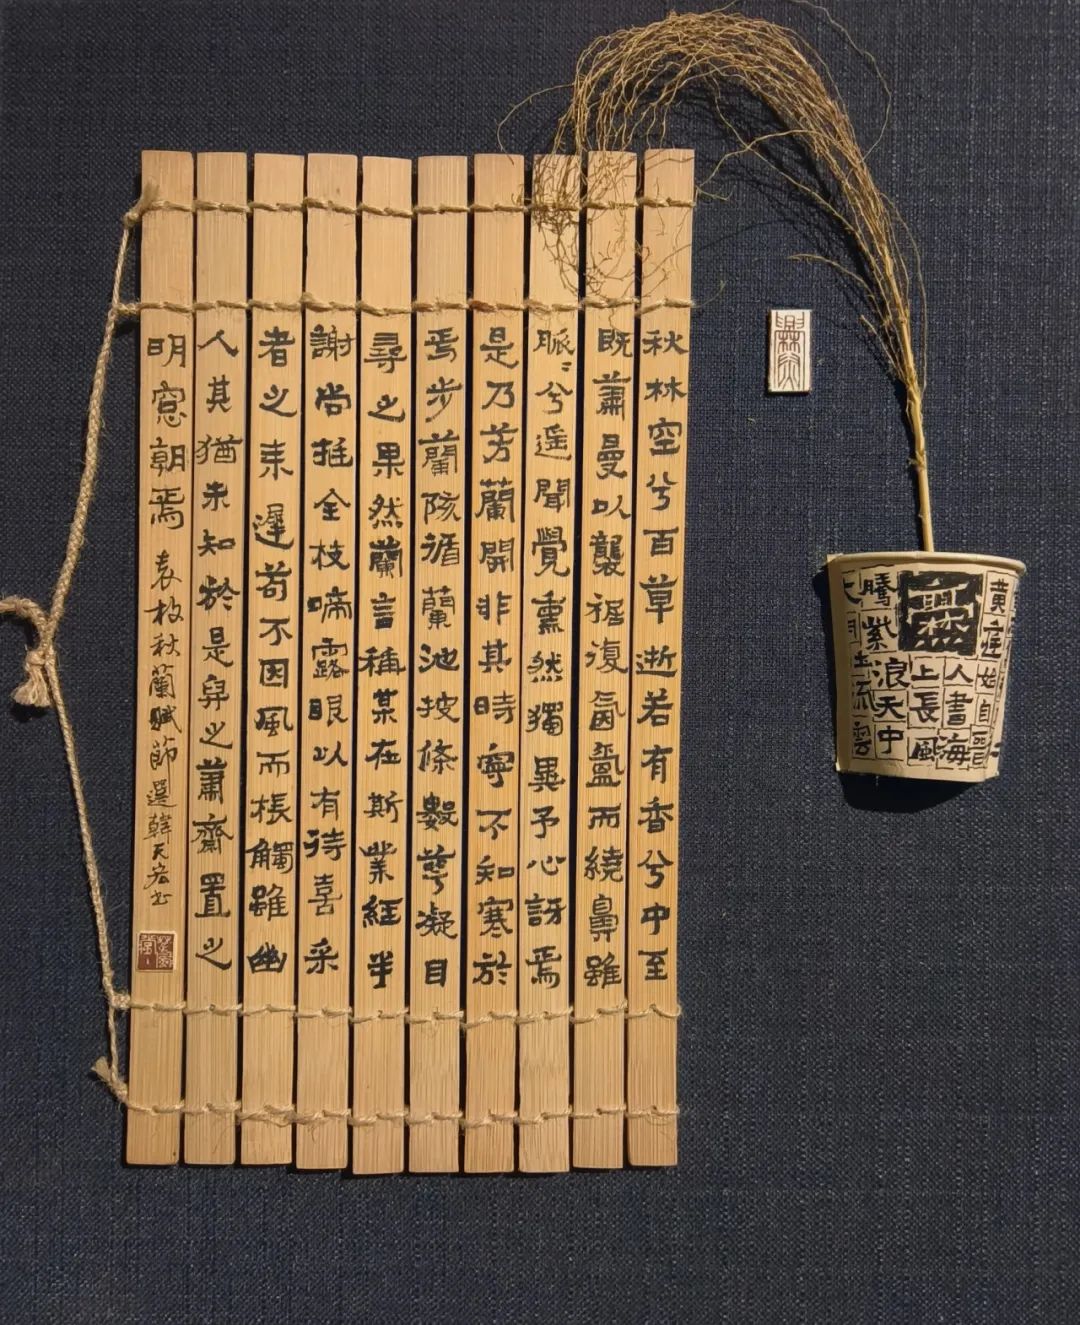 秋林空兮百草逝若有香兮中至
既蕭曼以襲裾復氤氳而繞鼻雖
脈〻兮遥聞覺熏然獨異予心訝焉
是乃芳蘭開非其時寧不知寒於
焉步蘭陔循蘭池按條數萼凝目
尋之果然蘭言稱某在斯業經半
謝尚挺全枝啼露眼以有待喜采
者之耒遲苟不因風而棖觸雖幽
人其猶未知於是舁之蕭齋置之
明窓朝焉 袁枚秋蘭賦節選韓天宏书
黄庭始自晉
人書海
上長風
騰紫浪天中
流雲